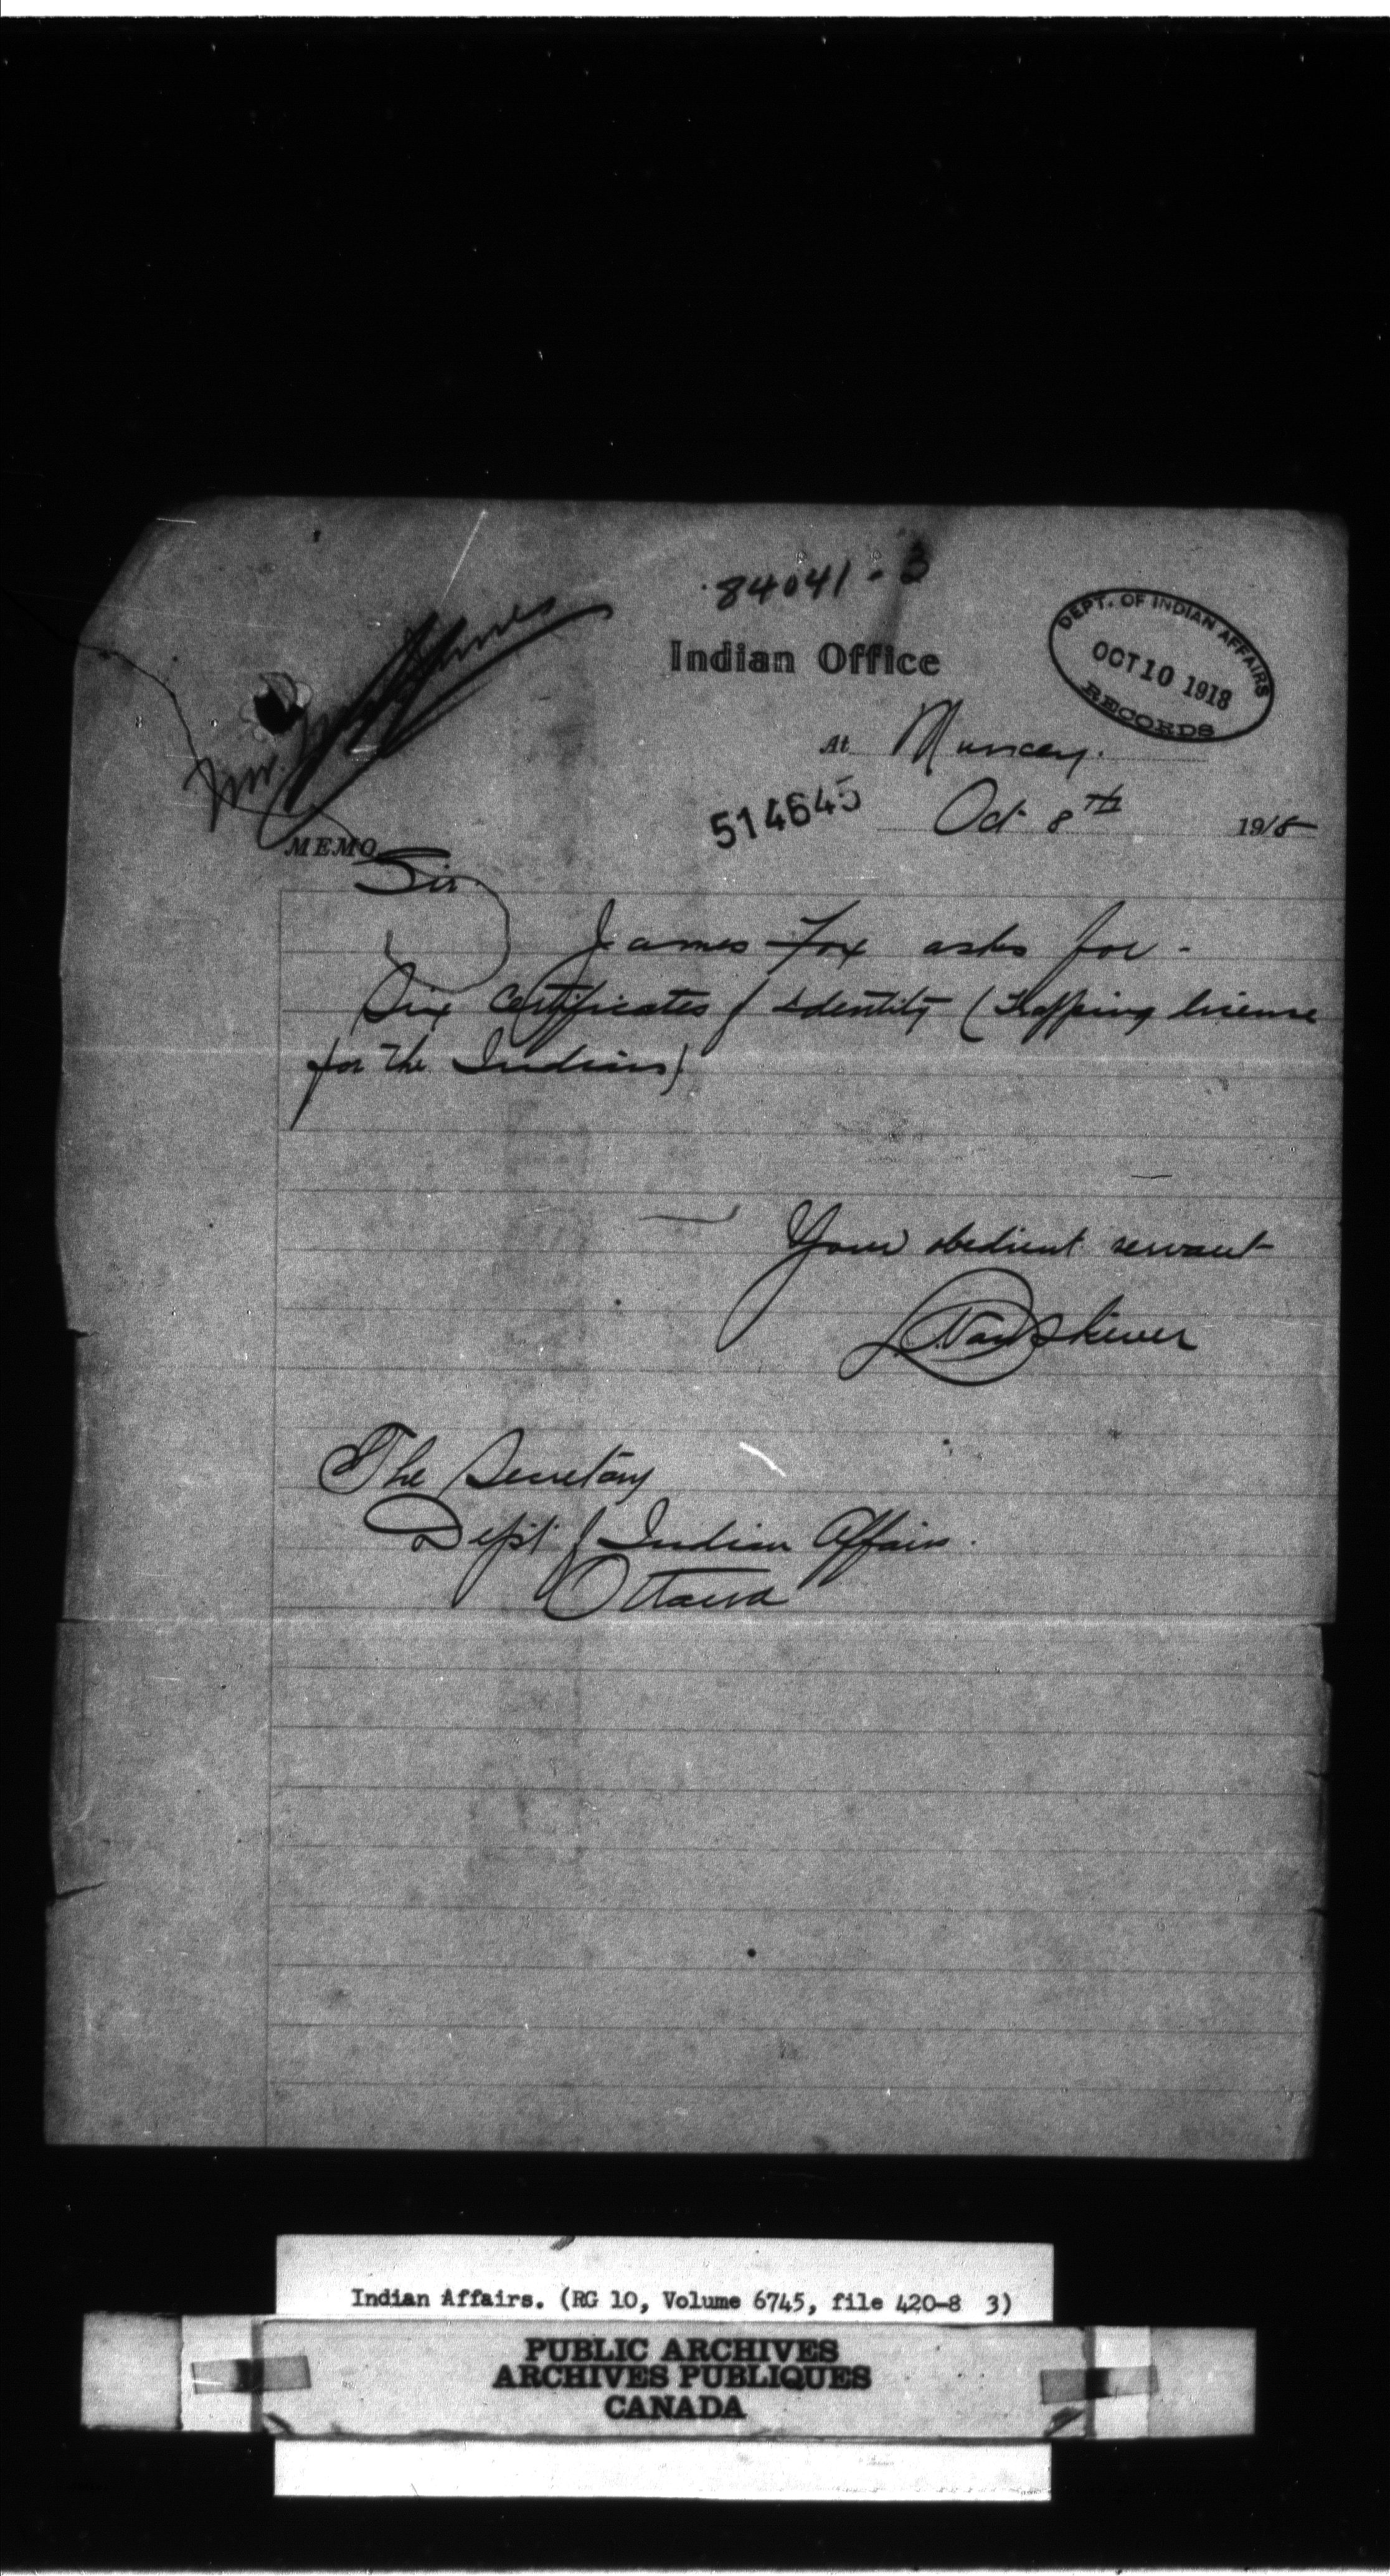 84041-3
DEPT. OF INDIAN AFFAIRS
OCT 10 1918
RECORDS
Indian Office
Mr.
At Muncey.
514645
Oct 8th 1918
MEMO
Sir
James Fox asks for -
Six Certificates of Identity (Trapping license
for the Indians)
Your obedient servant
Vanskiver
The Secretary
Dept of Indian Affairs.
Ottawa
Indian Affairs. (RG 10, Volume 6745, file 420-8 3)
PUBLIC ARCHIVES
ARCHIVES PUBLIQUES
CANADA